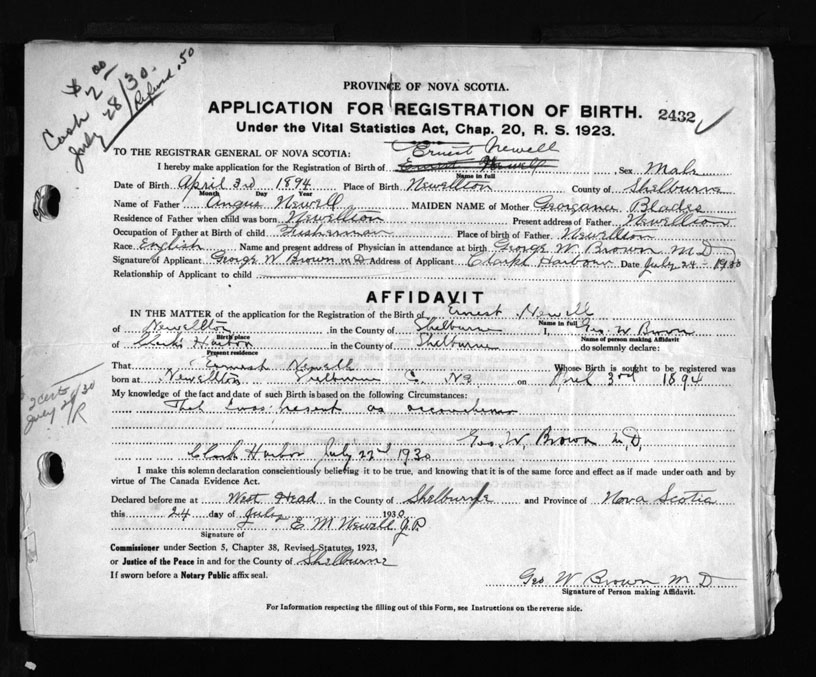 Cash $ 2.00
July 28/30.
Refund .50
PROVINCE OF NOVA SCOTIA.
APPLICATION FOR REGISTRATION OF BIRTH. 2432 ✓
Under the Vital Statistics Act, Chap. 20, R. S. 1923.
TO THE REGISTRAR GENERAL OF NOVA SCOTIA:
Ernest Newell
I hereby make application for the Registration of Birth of Ernest Newell Sex Male
Name in full
Date of Birth April 3rd 1894 Place of Birth Newellton County of Shelburne
Month Day Year
Name of Father Newell MAIDEN NAME of Mother Blades
Residence of Father when child was born Newellton Present address of Father Newellton
Occupation of Father at Birth of child Fisherman Place of birth of Father Newellton
Race English Name and present address of Physician in attendance at birth George W. Brown M D
Signature of Applicant George W Brown m D Address of Applicant Clarks Harbour Date July 24 - 1930
Relationship of Applicant to child
AFFIDAVIT
IN THE MATTER of the application for the Registration of the Birth of Ernest Newell
Name in full
of Newellton in the County of Shelburne I, Geo. W Brown
Birth place Name of person making Affidavit
of Clarks Harbor in the County of Shelburne do solemnly declare:
Present residence
That Ernest Newell Whose Birth is sought to be registered was
born at Newellton Shelburne Co. NS on April 3rd 1894
My knowledge of the fact and date of such Birth is based on the following Circumstances:
That I was present as
2 certs
July 29/30
R
Geo. W. Brown M.D,
Clark Harbor July 22nd 1930
I make this solemn declaration conscientiously believing it to be true, and knowing that it is of the same force and effect as if made under oath and by
virtue of The Canada Evidence Act.
Declared before me at West Head in the County of Shelburne and Province of Nova Scotia
this 24 day of July 1930
E M Newell J P
Signature of
Commissioner under Section 5, Chapter 38, Revised Statutes, 1923,
or Justice of the Peace in and for the County of Shelburne
If sworn before a Notary Public affix seal.
Geo W Brown M D
Signature of Person making Affidavit.
For Information respecting the filling out of this Form, see Instructions on the reverse side.